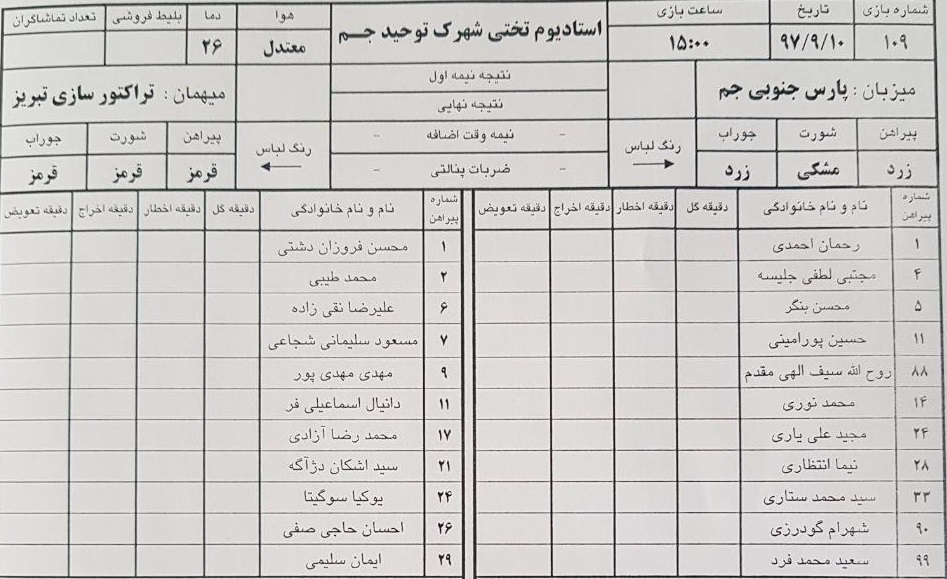 شماره بازی تاریخ ساعت بازی استادیوم تختی شهرک توحید جـم هوا دما بلیط فروشی تعداد تماشاگران
۱۰۹ ۹۷/۹/۱۰ ۱۵:۰۰ معتدل ۲۶
میزبان : پارس جنوبی جم نتیجه نیمه اول میهمان : تراکتور سازی تبریز
نتیجه نهایی
پیراهن شورت جوراب رنگ لباس - نیمه وقت اضافه - رنگ لباس پیراهن شورت جوراب
زرد مشکی زرد - ضربات پنالتی - قرمز قرمز قرمز
شماره پیراهن نام و نام خانوادگی دقیقه گل دقیقه اخطار دقیقه اخراج دقیقه تعویض شماره پیراهن نام و نام خانوادگی دقیقه گل دقیقه اخطار دقیقه اخراج دقیقه تعویض
۱ رحمان احمدی ۱ محسن فروزان دشتی
۴ مجتبی لطفی جلیسه ۲ محمد طیبی
۵ محسن بنگر ۶ علیرضا نقی زاده
۱۱ حسین پورامینی ۷ مسعود سلیمانی شجاعی
۸۸ روح الله سیف الهی مقدم ۹ مهدی مهدی پور
۱۴ محمد نوری ۱۱ دانیال اسماعیلی فر
۲۴ مجید علی یاری ۱۷ محمد رضا آزادی
۲۸ نیما انتظاری ۲۱ سید اشکان دژآگه
۳۳ سید محمد ستاری ۲۴ یوکیا سوگیتا
۹۰ شهرام گودرزی ۲۶ احسان حاجی صفی
۹۹ سعید محمد فرد ۲۹ ایمان سلیمی